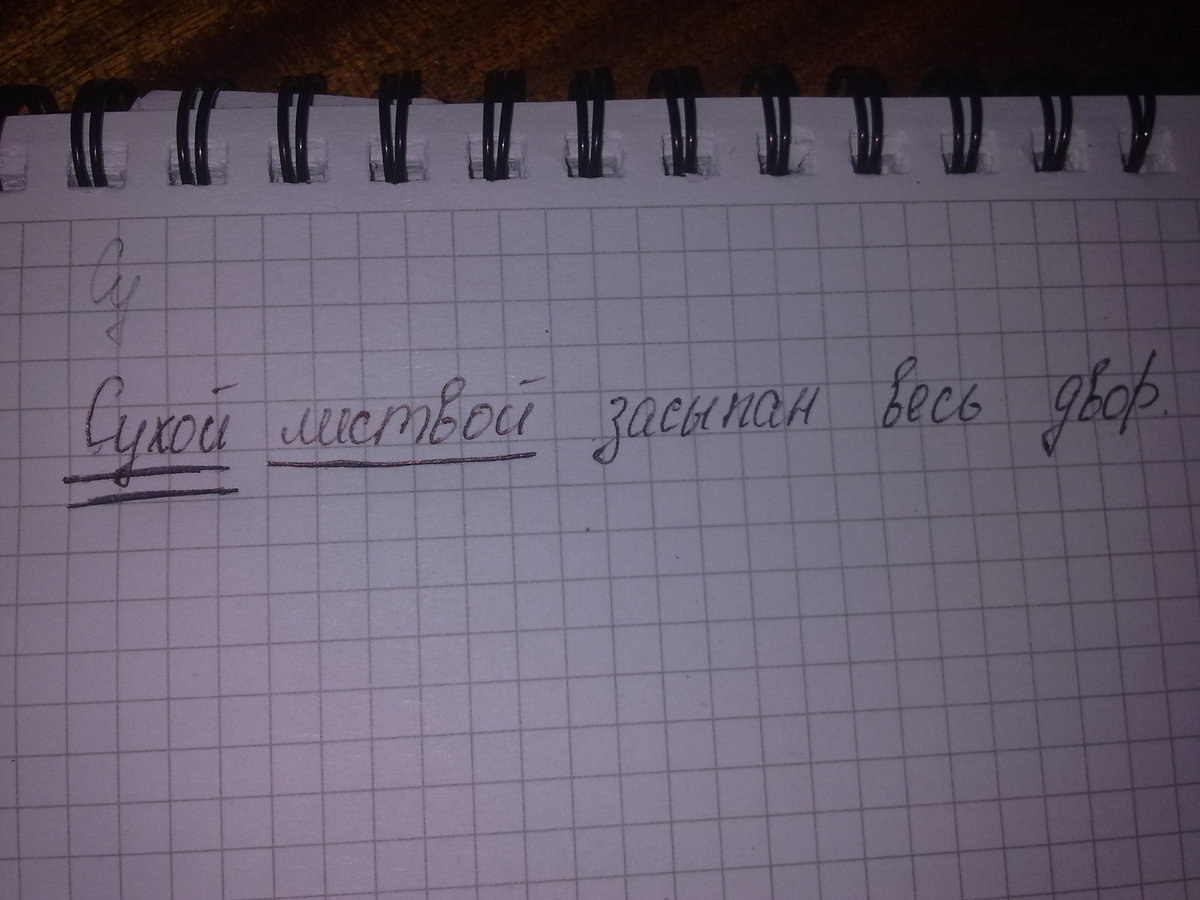 Су
Сухой листвой засыпан весь двор.